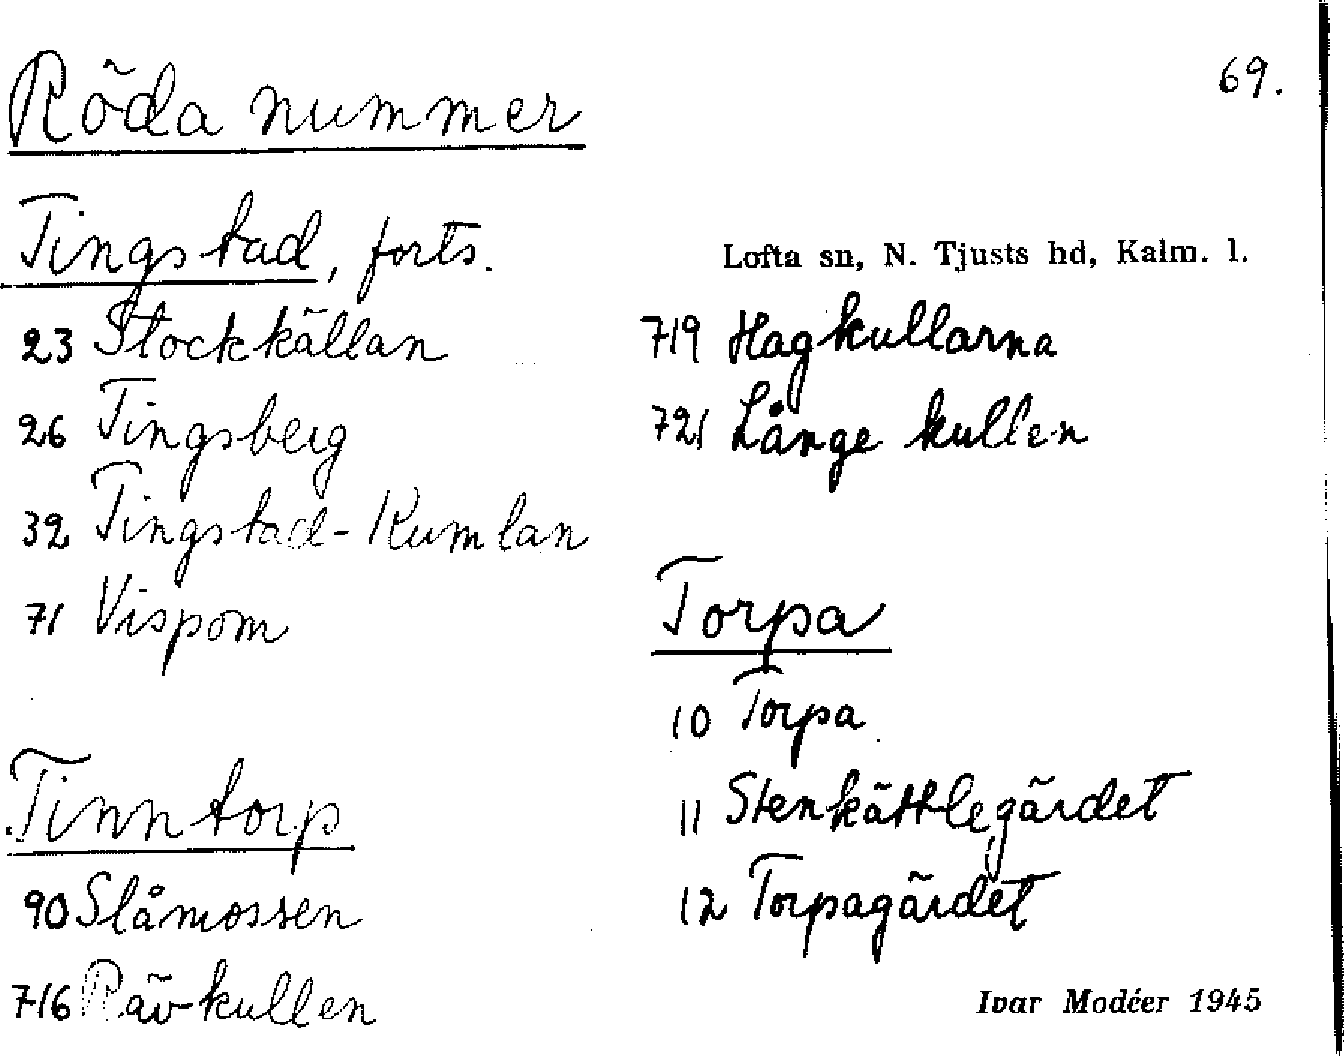 69.
Röda nummer
Tingstad, forts.
23 Stockkällan
26 Tingsberg
32 Tingstad-Kumlan
71 Vispom
Tinntorp
90 Slåmossen
716 Rävkullen
Lofta sn, N. Tjusts hd, Kalm. l.
719 Hagkullarna
721 Långe kullen
Torpa
10 Torpa
11 Stenkättlegärdet
12 Torpagärdet
Ivar Modéer 1945